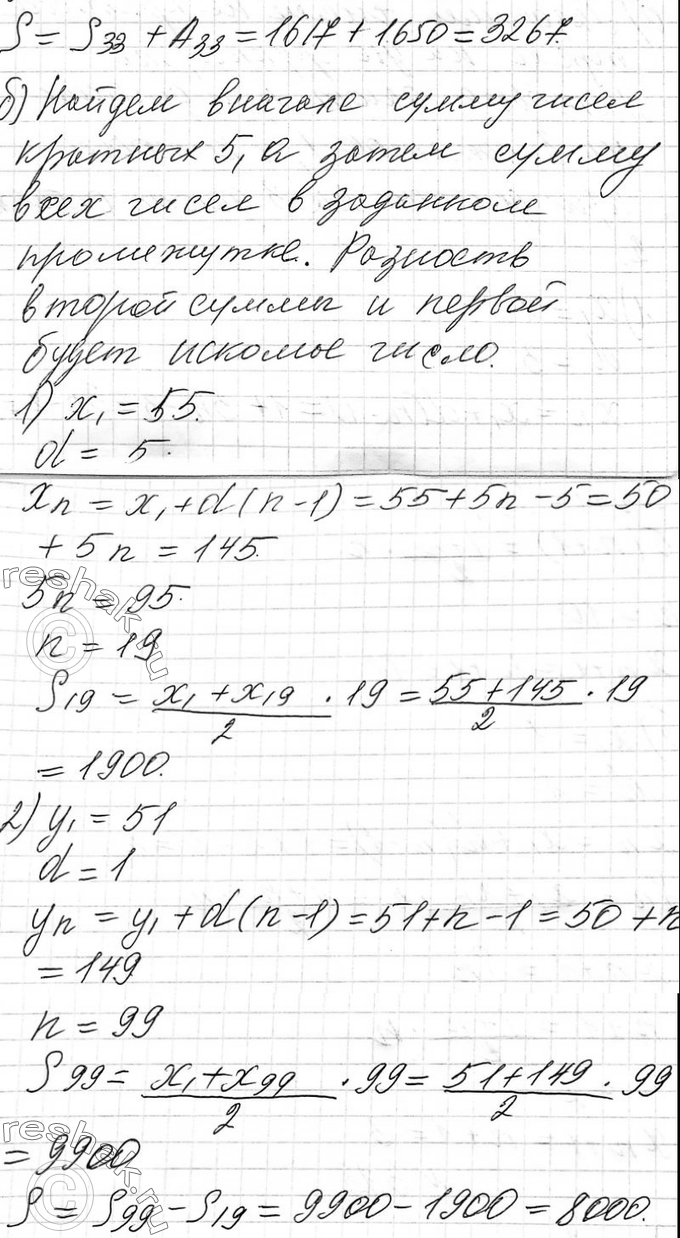 S = S₃₃ + A₃₃ = 1617 + 1650 = 3267.
б) Найдем вначале сумму чисел
кратных 5, а затем сумму
всех чисел в заданном
промежутке. Разность
второй суммы и первой
будет искомое число.
1) x₁ = 55.
d = 5.
xₙ = x₁ + d(n-1) = 55 + 5n - 5 = 50
+ 5n = 145.
5n = 95.
n = 19
S₁₉ = (x₁ + x₁₉)/2 · 19 = (55 + 145)/2 · 19
= 1900.
2) y₁ = 51
d = 1
yₙ = y₁ + d(n-1) = 51 + n - 1 = 50 + n
= 149
n = 99
S₉₉ = (x₁ + x₉₉)/2 · 99 = (51 + 149)/2 · 99
= 9900
S = S₉₉ - S₁₉ = 9900 - 1900 = 8000.
reshak.ru
reshak.ru